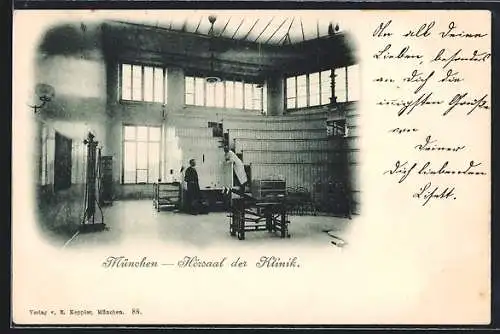 An all Deine
Lieben, besonders
an Dich die
innigsten Grüße
von
Deiner
Dich liebenden
Lisett.
München — Hörsaal der Klinik.
Verlag v. E. Keppler, München. 88.